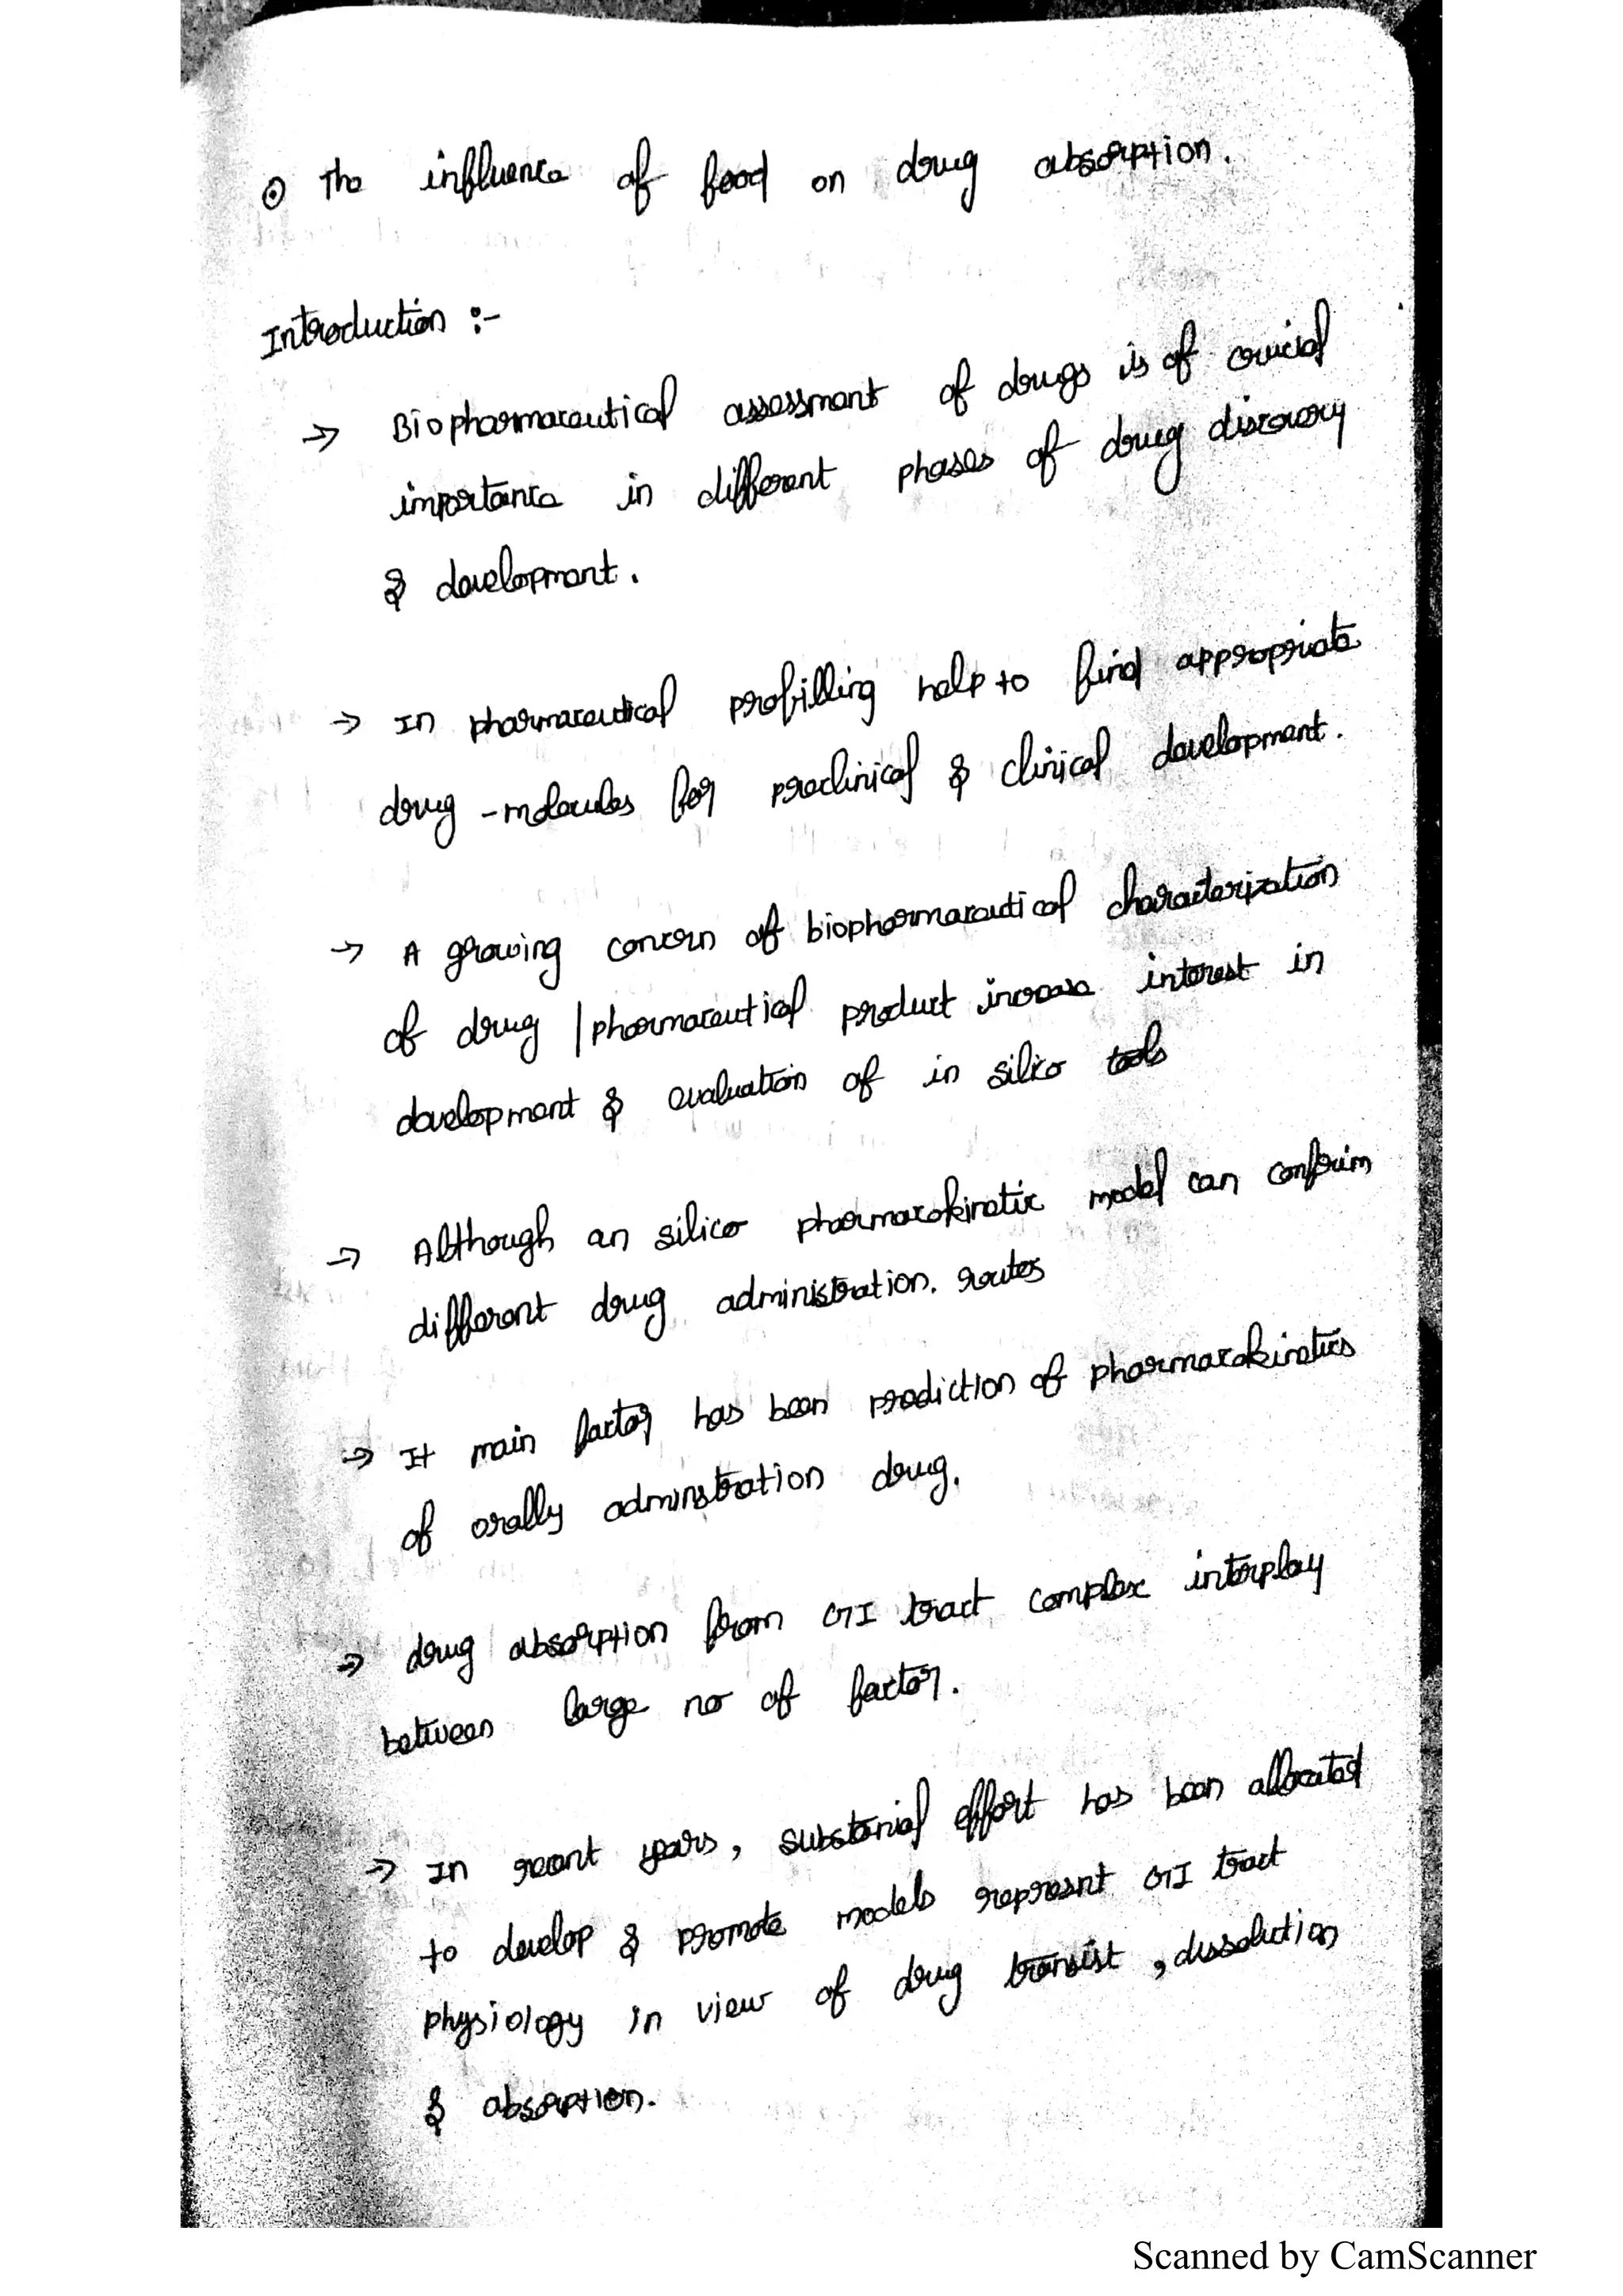 ⊙ The influence of food on drug absorption.
Introduction :-
→ Biopharmaceutical assessment of drugs is of crucial
importance in different phases of drug discovery
& development.
→ In pharmaceutical profilling help to find appropriate
drug - molecules for preclinical & clinical development.
→ A growing concern of biopharmaceutical characterization
of drug / pharmaceutical product increase interest in
development & evaluation of in silico tools
→ Although an silico pharmacokinetic model can confrim
different drug administration. routes
→ It main factor has been prediction of pharmacokinetics
of orally adminstration drug.
→ drug absorption from GI tract complex interplay
between large no of factor.
→ In recent years, substanial effort has been allocated
to develop & promote models represnt GI tract
physiology in view of drug transist , dissolution
& absorption.
Scanned by CamScanner